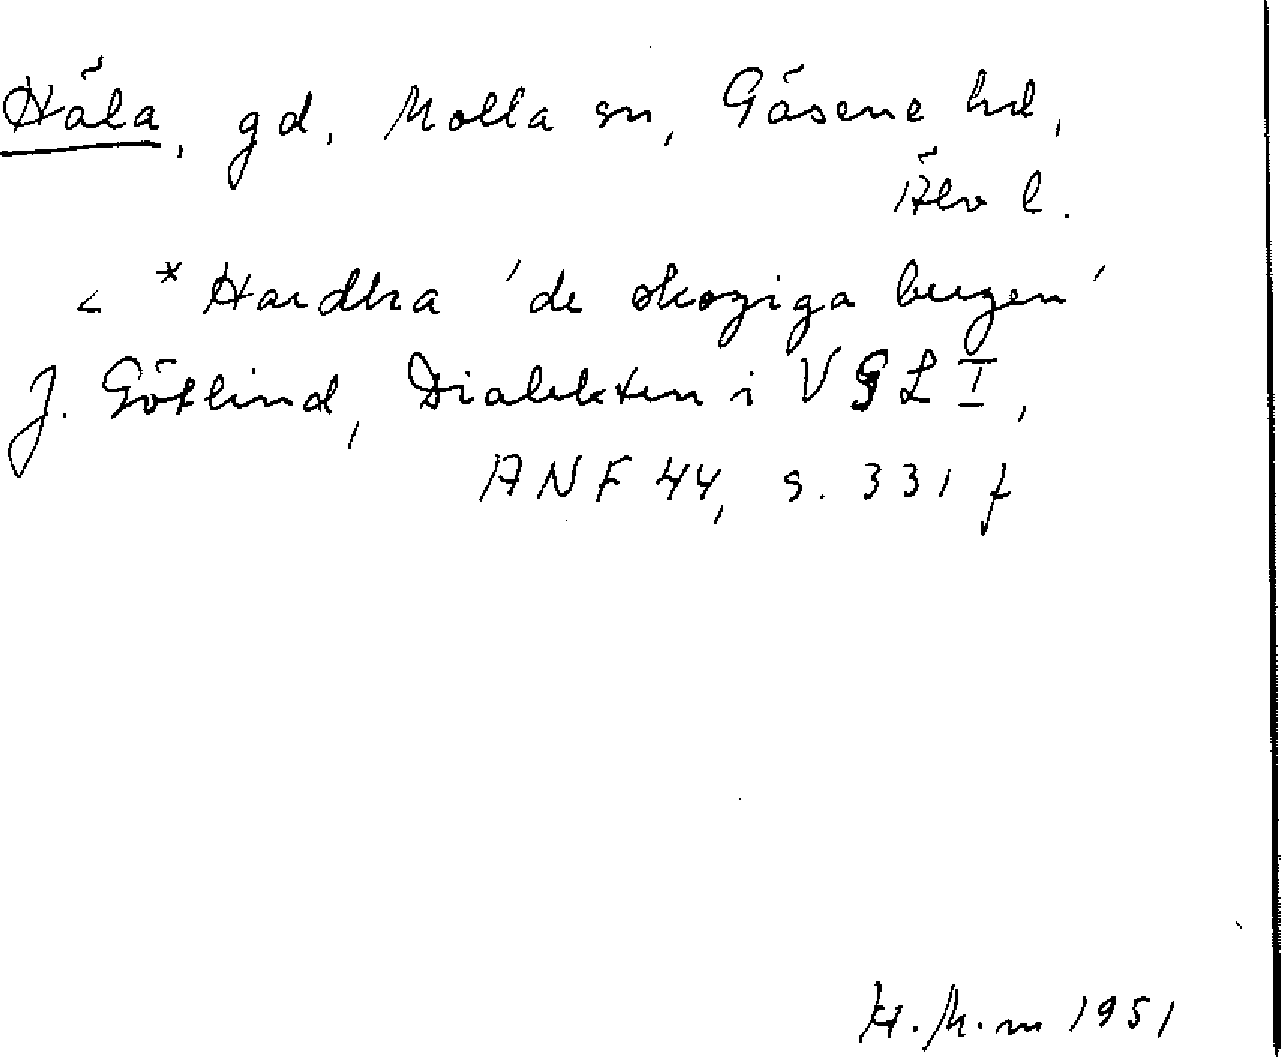 Håla, gd, Molla sn, Gäsene hd,
Älv l.
< *Hardha 'de skogiga bergen'
J. Götlind, Dialekten i VGL I,
ANF 44, s. 331 f
H. M-m 1951